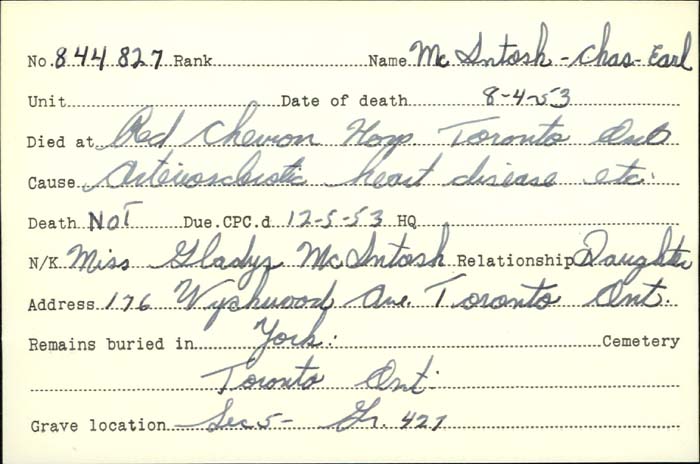 No. 844 827 Rank Name Mc Intosh - Chas - Earl
Unit Date of death 8-4-53
Died at Red Chevron Hosp. Toronto Ont
Cause Arteriosclerotic heart disease etc.
Death NOT Due.CPC.d 12-5-53 HQ
N/K Miss Gladys McIntosh Relationship Daughter
Address 176 Wychwood Ave. Toronto Ont.
Remains buried in York: Cemetery
Toronto Ont.
Grave location Sec 5- Gr. 427